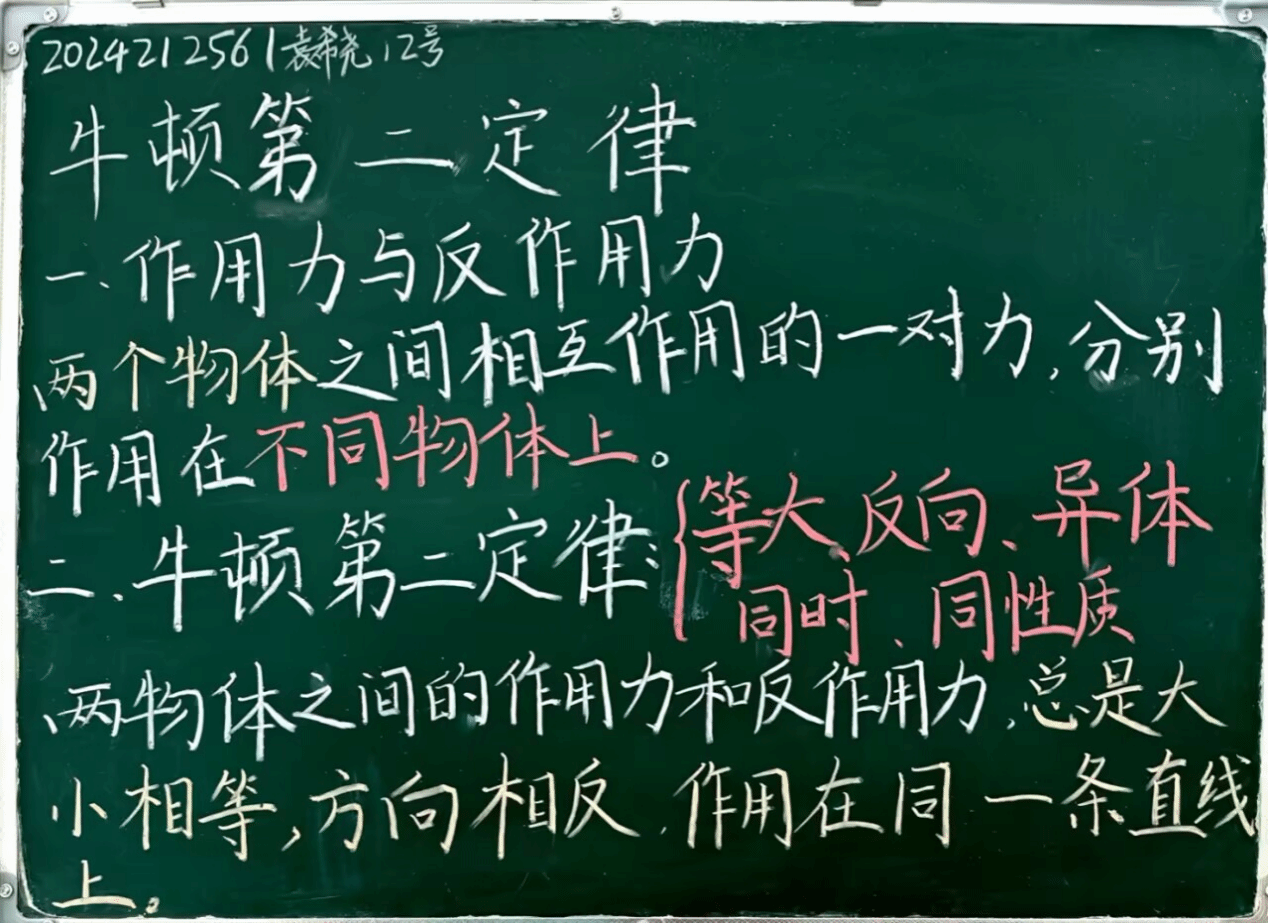 2024212561袁希尧12号
牛顿第二定律
一、作用力与反作用力
两个物体之间相互作用的一对力,分别
作用在不同物体上。
二、牛顿第二定律:{等大、反向、异体
同时、同性质
两物体之间的作用力和反作用力,总是大
小相等,方向相反,作用在同一条直线
上。